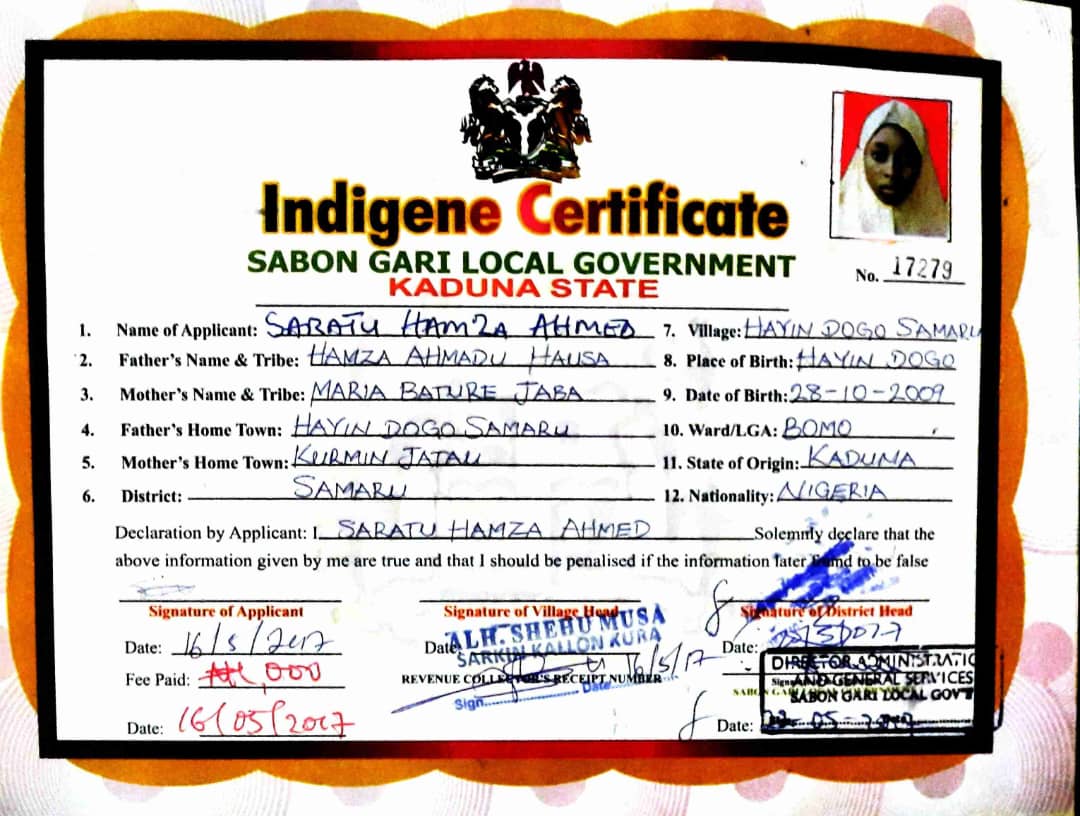 Indigene Certificate
SABON GARI LOCAL GOVERNMENT
KADUNA STATE
No. 17279
1. Name of Applicant: SARATU HAMZA AHMED
2. Father's Name & Tribe: HAMZA AHMADU HAUSA
3. Mother's Name & Tribe: MARIA BATURE JABA
4. Father's Home Town: HAYIN DOGO SAMARU
5. Mother's Home Town: KURMIN JATAU
6. District: SAMARU
7. Village: HAYIN DOGO SAMARU
8. Place of Birth: HAYIN DOGO
9. Date of Birth: 28-10-2009
10. Ward/LGA: BOMO
11. State of Origin: KADUNA
12. Nationality: NIGERIA
Declaration by Applicant: I SARATU HAMZA AHMED Solemnly declare that the
above information given by me are true and that I should be penalised if the information later found to be false
Signature of Applicant
Date: 16/5/2017
Fee Paid: ₦1,000
Date: 16/05/2017
Signature of Village Head
ALH. SHEHU MUSA
SARKIN KALLON KURA
Date: 16/5/17
REVENUE COLLECTOR'S RECEIPT NUMBER
Sign. Date
Signature of District Head
Date:
DIRECTOR ADMINISTRATIO
AND GENERAL SERVICES
SABON GARI LOCAL GOVT
Date: 22-05-2017